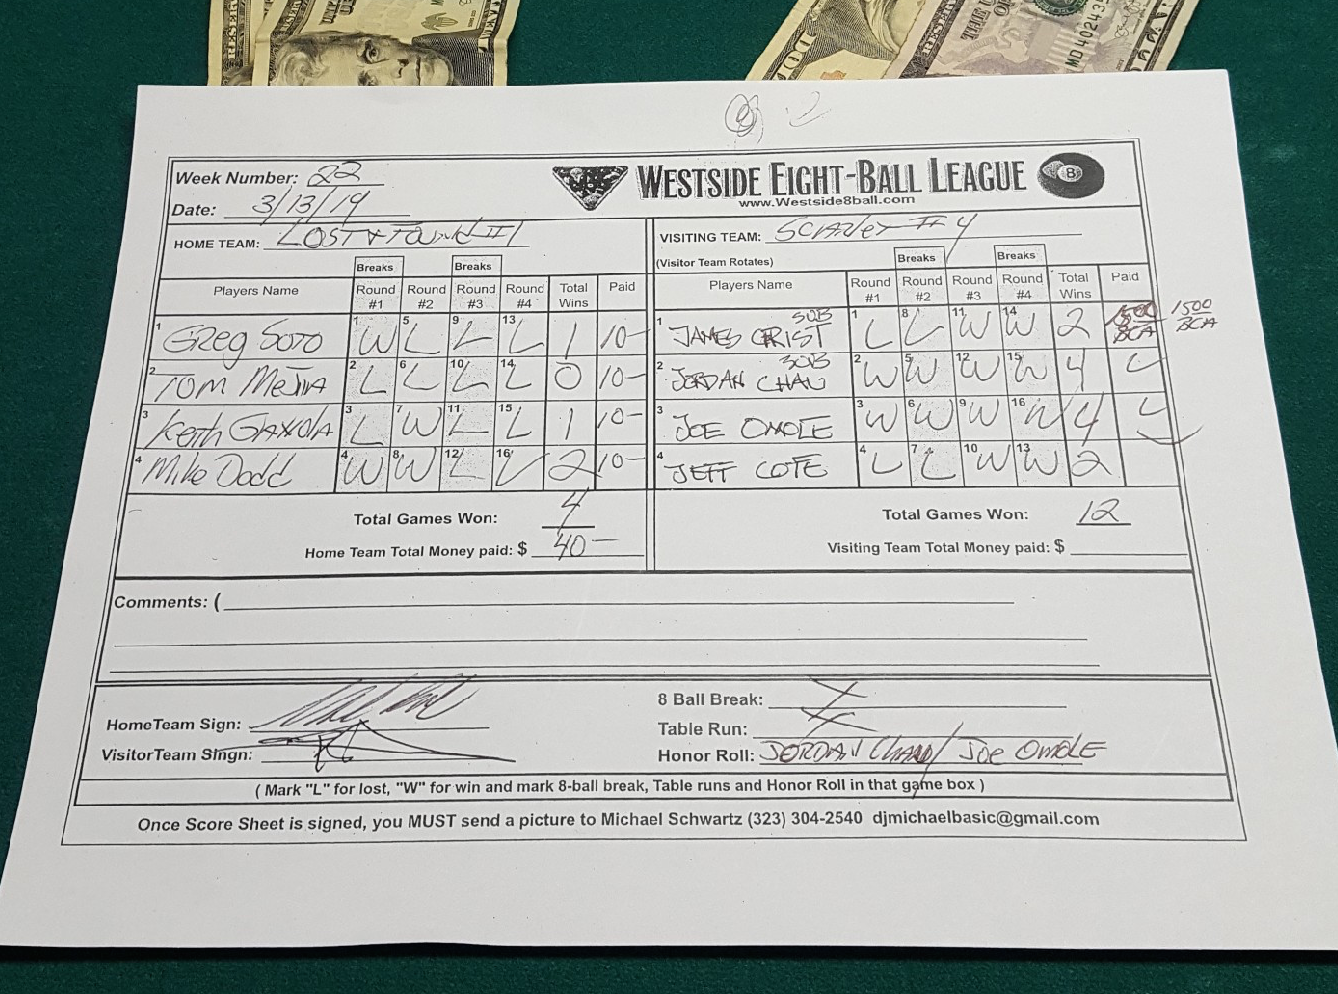 Week Number: 22
WESTSIDE EIGHT-BALL LEAGUE 8
www.Westside8ball.com
Date: 3/13/19
HOME TEAM: LOST & FOUND #1
VISITING TEAM: SCARLET #4
(Visitor Team Rotates)
Breaks Breaks Breaks Breaks
Players Name Round #1 Round #2 Round #3 Round #4 Total Wins Paid
1 Greg Soto 1 W 5 L 9 L 13 L 1 10-
2 TOM MeJIA 2 L 6 L 10 L 14 L 0 10-
3 Keith 3 L 7 W 11 L 15 L 1 10-
4 Mike Dodd 4 W 8 W 12 L 16 L 2 10-
Total Games Won: 4
Home Team Total Money paid: $ 40-
Players Name Round #1 Round #2 Round #3 Round #4 Total Wins Paid
1 JAMES CRIST SUB 1 L 8 L 11 W 14 W 2 1500 BCA 1500 BCA
2 JORDAN CHAU SUB 2 W 5 W 12 W 15 W 4
3 JOE OMOLE 3 W 6 W 9 W 16 W 4
4 JEFF COTE 4 L 7 L 10 W 13 W 2
Total Games Won: 12
Visiting Team Total Money paid: $
Comments: (
HomeTeam Sign:
VisitorTeam Singn:
8 Ball Break:
Table Run:
Honor Roll: JORDAN CHAU / JOE OMOLE
( Mark "L" for lost, "W" for win and mark 8-ball break, Table runs and Honor Roll in that game box )
Once Score Sheet is signed, you MUST send a picture to Michael Schwartz (323) 304-2540 djmichaelbasic@gmail.com